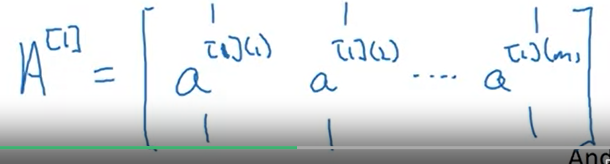 A^[1] = [ a^[1](1) a^[1](2) .... a^[1](m) ]
And